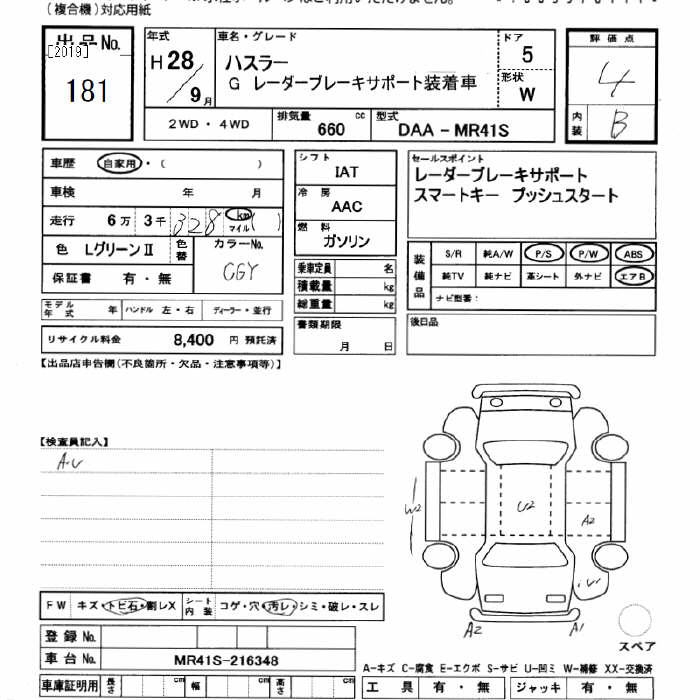 (複合機)対応用紙
出品No.
[2019]
181
年式
H28/9月
車名・グレード
ハスラー
G レーダーブレーキサポート装着車
ドア
5
形状
W
評価点
4
内装
B
2WD・4WD
排気量
660
cc
型式
DAA-MR41S
車歴
自家用・( )
車検
年 月
走行
6万 3千 328 km ( )
マイル
色
LグリーンⅡ
色替
カラーNo.
CGY
保証書
有・無
モデル年式
年
ハンドル 左・右
ディーラー・並行
リサイクル料金
8,400 円 預託済
シフト
IAT
冷房
AAC
燃料
ガソリン
乗車定員
名
積載量
kg
総重量
kg
書類期限
月 日
セールスポイント
レーダーブレーキサポート
スマートキー プッシュスタート
装備品
S/R 純A/W P/S P/W ABS
純TV 純ナビ 革シート 外ナビ エアB
ナビ型番:
後日品
【出品店申告欄(不良箇所・欠品・注意事項等)】
【検査員記入】
A・U
W2
U2
A2
A2
A1
スペア
FW キズ・トビ石・割レX
シート内装
コゲ・穴・汚レ・シミ・破レ・スレ
登録No.
車台No.
MR41S-216348
車庫証明用
長さ
cm
幅
cm
高さ
cm
A-キズ C-腐食 E-エクボ S-サビ U-凹ミ W-補修 XX-交換済
工具 有・無
ジャッキ 有・無